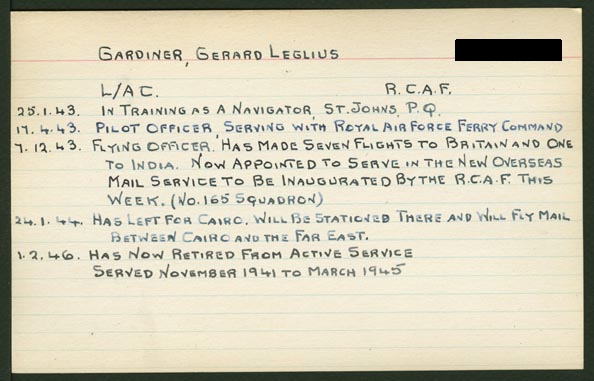 GARDINER, GERARD LEGLIUS
L/AC. R.C.A.F.
25.1.43. IN TRAINING AS A NAVIGATOR, ST. JOHNS, P.Q.
17.4.43. PILOT OFFICER, SERVING WITH ROYAL AIR FORCE FERRY COMMAND
7.12.43. FLYING OFFICER. HAS MADE SEVEN FLIGHTS TO BRITAIN AND ONE
TO INDIA. NOW APPOINTED TO SERVE IN THE NEW OVERSEAS
MAIL SERVICE TO BE INAUGURATED BY THE R.C.A.F. THIS
WEEK. (NO. 165 SQUADRON)
24.1.44. HAS LEFT FOR CAIRO. WILL BE STATIONED THERE AND WILL FLY MAIL
BETWEEN CAIRO AND THE FAR EAST.
1.2.46. HAS NOW RETIRED FROM ACTIVE SERVICE
SERVED NOVEMBER 1941 TO MARCH 1945